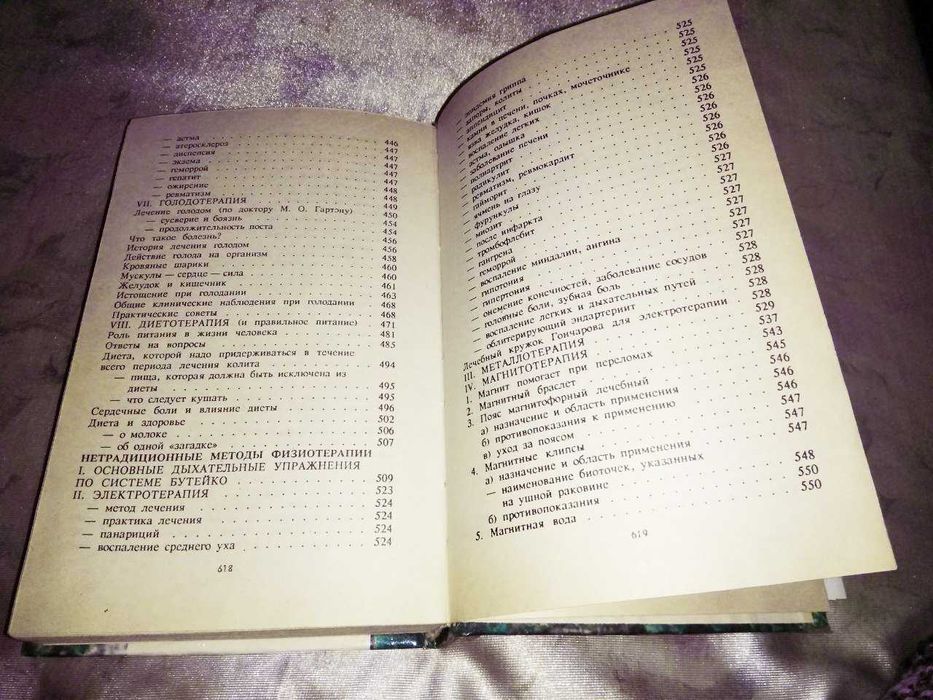 — астма 446
— атеросклероз 447
— диспепсия 447
— экзема 447
— геморрой 447
— гепатит 447
— ожирение 448
— ревматизм 448
VII. ГОЛОДОТЕРАПИЯ 449
Лечение голодом (по доктору М. О. Гартэну) 450
— суеверие и боязнь 454
— продолжительность поста 454
Что такое болезнь? 456
История лечения голодом 456
Действие голода на организм 458
Кровяные шарики 460
Мускулы — сердце — сила 460
Желудок и кишечник 461
Истощение при голодании 463
Общие клинические наблюдения при голодании 468
Практические советы 468
VIII. ДИЕТОТЕРАПИЯ (и правильное питание) 471
Роль питания в жизни человека 481
Ответы на вопросы 485
Диета, которой надо придерживаться в течение
всего периода лечения колита 494
— пища, которая должна быть исключена из
диеты 495
— что следует кушать 495
Сердечные боли и влияние диеты 496
Диета и здоровье 502
— о молоке 506
— об одной «загадке» 507
НЕТРАДИЦИОННЫЕ МЕТОДЫ ФИЗИОТЕРАПИИ
I. ОСНОВНЫЕ ДЫХАТЕЛЬНЫЕ УПРАЖНЕНИЯ
ПО СИСТЕМЕ БУТЕЙКО 509
II. ЭЛЕКТРОТЕРАПИЯ 523
— метод лечения 524
— практика лечения 524
— панариций 524
— воспаление среднего уха 524
618
— эпидемия гриппа 525
— запоры, колиты 525
— аппендицит 525
— камни в печени, почках, мочеточнике 525
— язва желудка, кишок 525
— воспаление легких 526
— астма, одышка 526
— заболевание печени 526
— полиартрит 526
— радикулит 526
— ревматизм, ревмокардит 526
— гайморит 527
— ячмень на глазу 527
— фурункулы 527
— миозит 527
— после инфаркта 527
— тромбофлебит 527
— гангрена 527
— геморрой 527
— воспаление миндалин, ангина 528
— гипотония 528
— гипертония 528
— онемение конечностей, заболевание сосудов
— головные боли, зубная боль 528
— воспаление легких и дыхательных путей
— облитерирующий эндартериит 528
Лечебный кружок Гончарова для электротерапии 529
III. МЕТАЛЛОТЕРАПИЯ 537
IV. МАГНИТОТЕРАПИЯ 543
1. Магнит помогает при переломах 545
2. Магнитный браслет 546
3. Пояс магнитофорный лечебный 546
а) назначение и область применения 546
б) противопоказания к применению 547
в) уход за поясом 547
4. Магнитные клипсы
а) назначение и область применения 547
— наименование биоточек, указанных
на ушной раковине 548
б) противопоказания 550
5. Магнитная вода 550
619